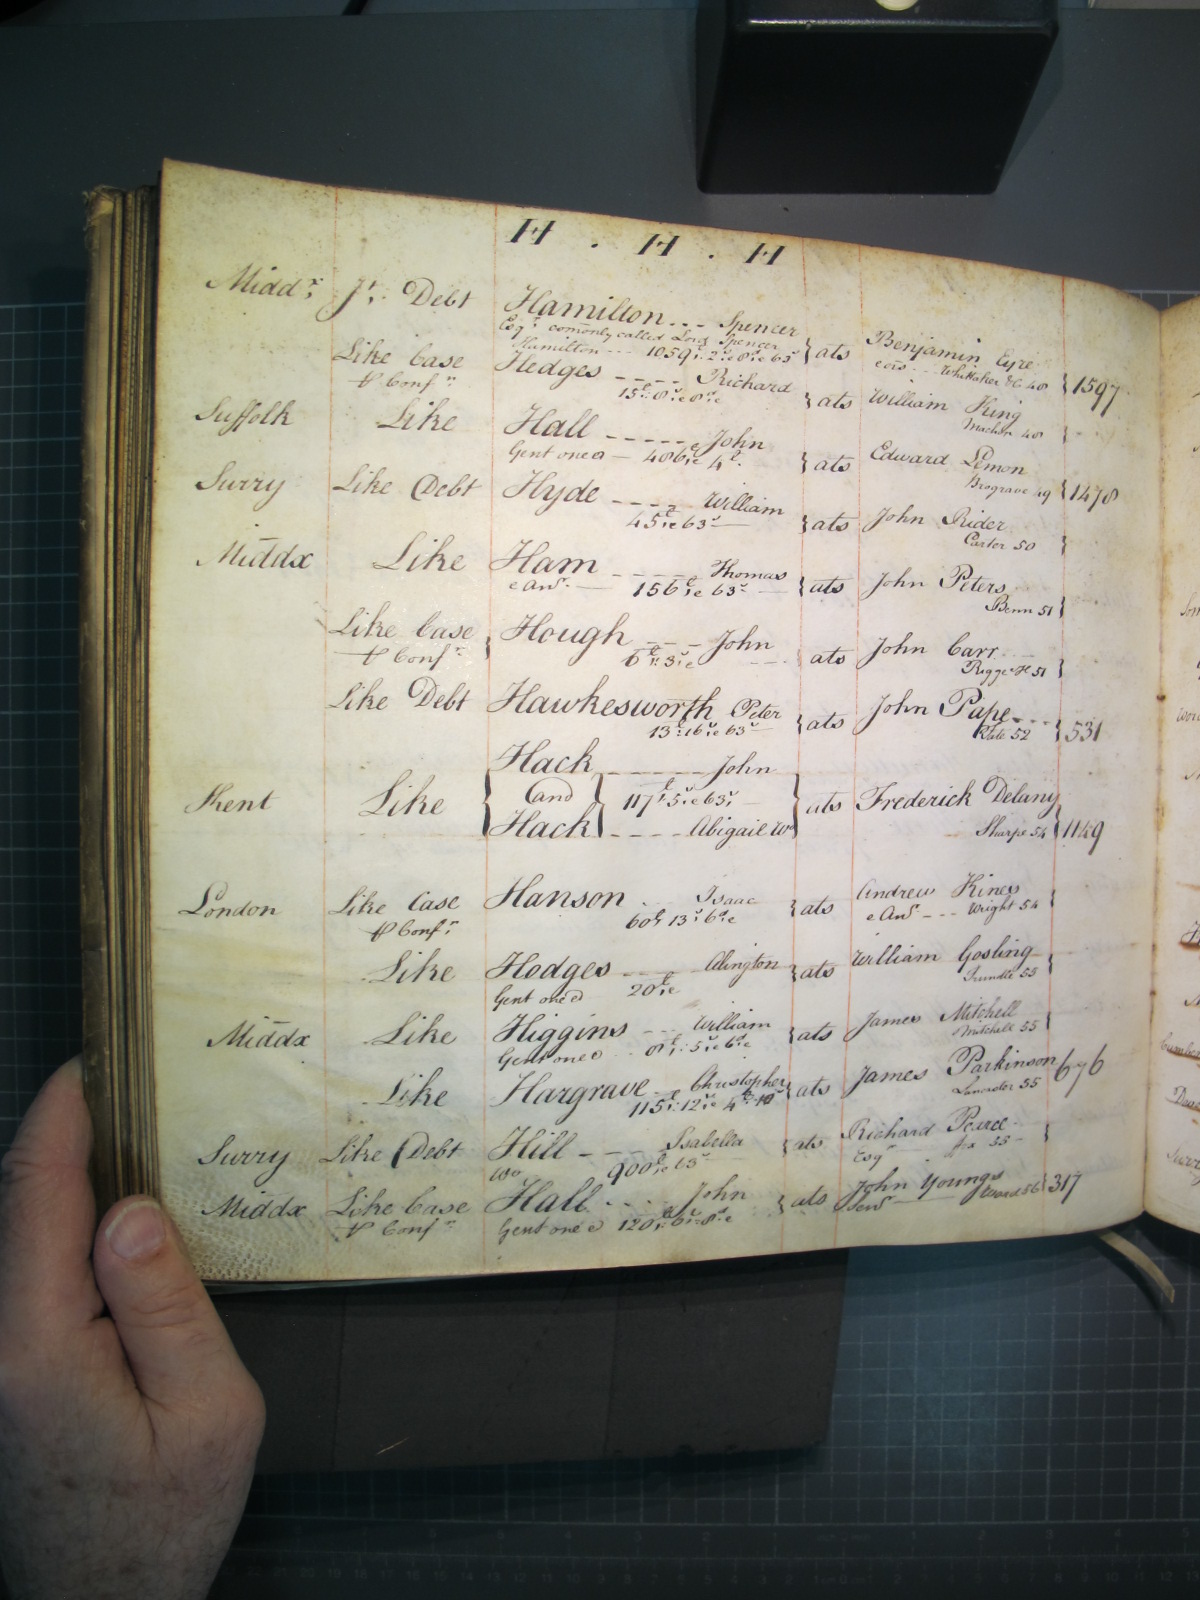 H . H . H
Middx Jt. Debt Hamilton --- Spencer
Esqr. comonly called Lord Spencer
Hamilton --- 1059 63s } ats Benjamin Eyre
Whittaker &c 48 } 1597
Like Case Hedges ---- Richard } ats William King
p Confn. 15 8 8 Machin 48 }
Suffolk Like Hall ----- John } ats Edward Lemon
Gent one &c — 486 4 Brograve 49 } 1478
Surry Like Debt Hyde ---- William } ats John Rider
45 63s — Carter 50 }
Middx Like Ham ---- Thomas } ats John Peters
& anr. — 156 63s — Benn 51 }
Like Case } Hough --- John ats John Carr
p Confn. 6 3 Rigge H 51 }
Like Debt Hawkesworth Peter ats John Pape ---
13 16 63s — 52 } 531
Hack ------ John
Kent Like { and } 117 5 63s — } ats Frederick Delany
Hack ---- Abigail Wo Sharpe 54 } 1149
London Like Case Hanson Isaac } ats Andrew Hines
p Confn. 60 13 6 & anr --- Wright 54 }
Like Hodges --- Alington } ats William Gosling
Gent one &c 20 Trundle 55 }
Middx Like Higgins --- William } ats James Mitchell
Gent one &c 8 5 6 Mitchell 55 }
Like Hargrave -- Christopher } ats James Parkinson 676
115 12 4 Lancaster 55
Surry Like Debt Hill -- Isabella } ats Richard Pearce
Wo 900 63s — Esqr Fix 55 }
Middx Like Case Hall --- John } ats John Youngs
p Confn. Gent one &c 120 6 8 Senr Ward 56 } 317